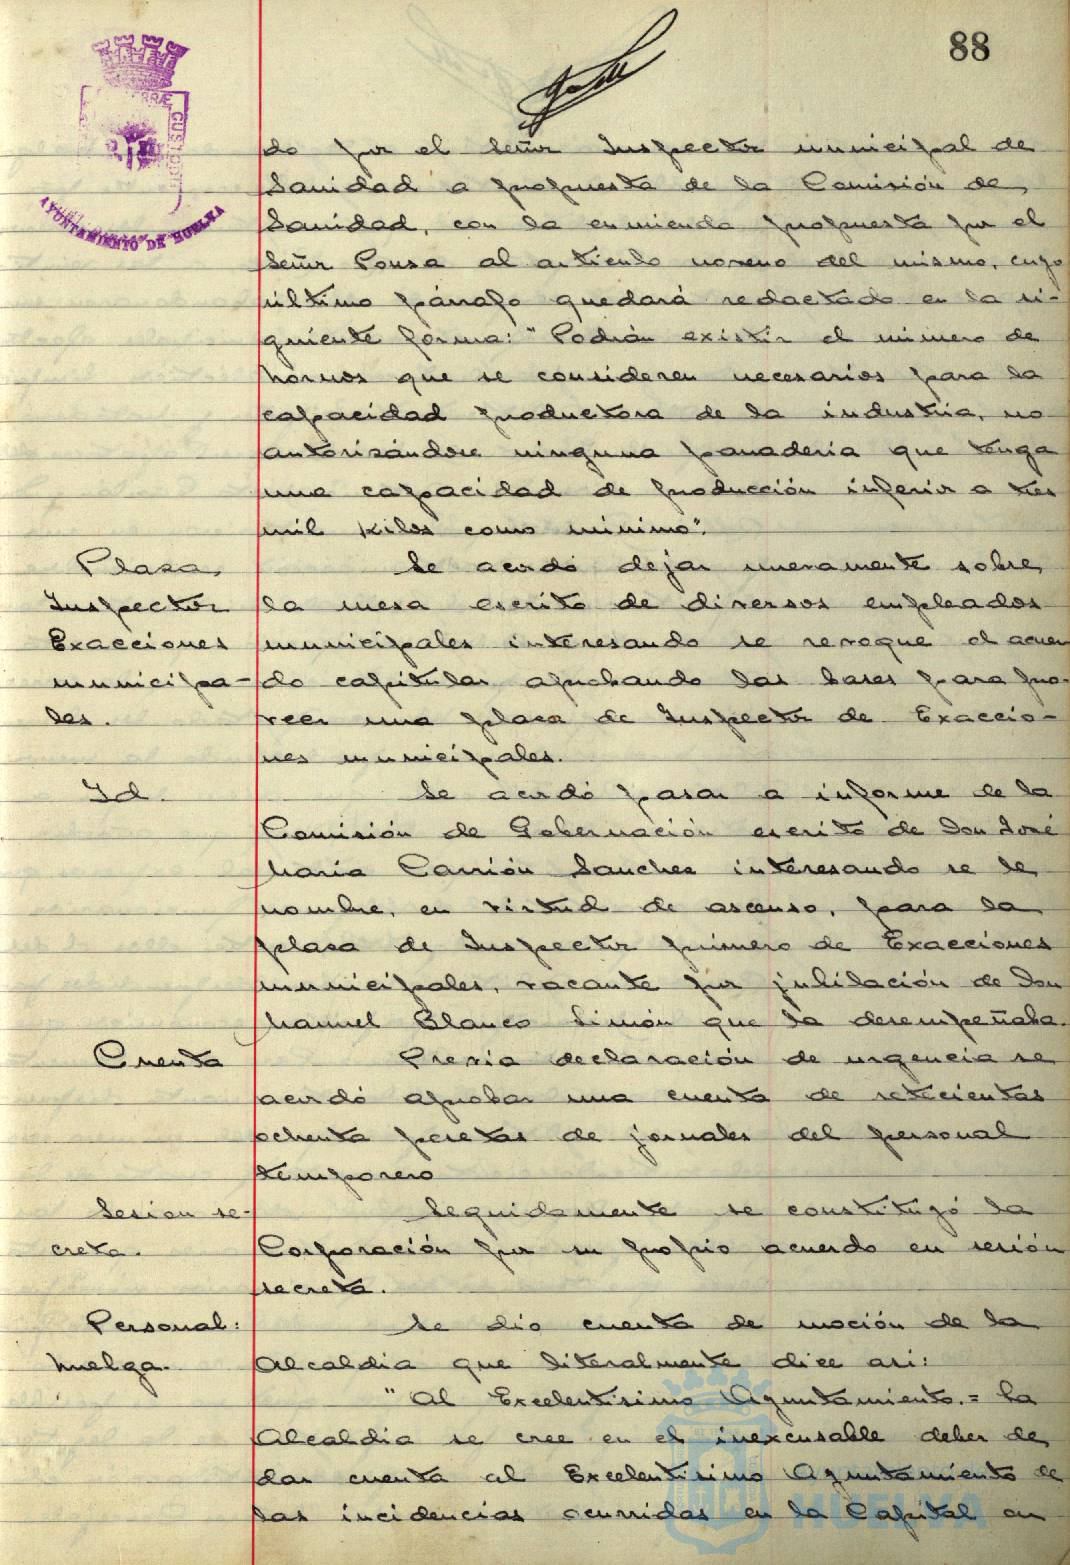 88
do por el Señor Inspector municipal de
Sanidad a propuesta de la Comisión de
Sanidad, con la enmienda propuesta por el
Señor Ponsa al artículo noveno del mismo, cuyo
último párrafo quedará redactado en la si-
guiente forma: "Podrán existir el número de
hornos que se consideren necesarios para la
capacidad productora de la industria, no
autorisándose ninguna panadería que tenga
una capacidad de producción inferior a tres
mil kilos como mínimo".
Plaza
Inspector
Exacciones
municipa-
les.
Se acordó dejar nuevamente sobre
la mesa escrito de diversos empleados
municipales interesando se revoque el acuer
do capitular aprobando las bases para pro-
veer una plaza de Inspector de Exaccio-
nes municipales.
Id.
Se acordó pasar a informe de la
Comisión de Gobernación escrito de Don José
María Carrión Sanchez interesando se le
nombre, en virtud de ascenso, para la
plaza de Inspector primero de Exacciones
municipales, vacante por jubilación de Don
Manuel Blanco Simón que la desempeñaba.
Cuenta
Previa declaración de urgencia se
acordó aprobar una cuenta de setecientas
ochenta pesetas de jornales del personal
temporero
Sesion se-
creta.
Seguidamente se constituyó la
Corporación por su propio acuerdo en sesión
secreta.
Personal:
huelga.
Se dio cuenta de moción de la
Alcaldía que literalmente dice así:
"Al Excelentísimo Ayuntamiento.= La
Alcaldía se cree en el inexcusable deber de
dar cuenta al Excelentísimo Ayuntamiento de
las incidencias ocurridas en la Capital en
AYUNTAMIENTO DE HUELVA
HUELVA